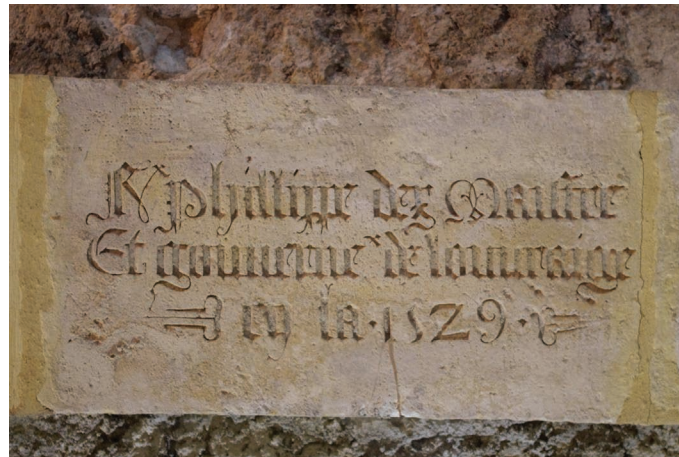 philippe dez Maistre
Et gouuerne de louuraige
en la · 1529 ·